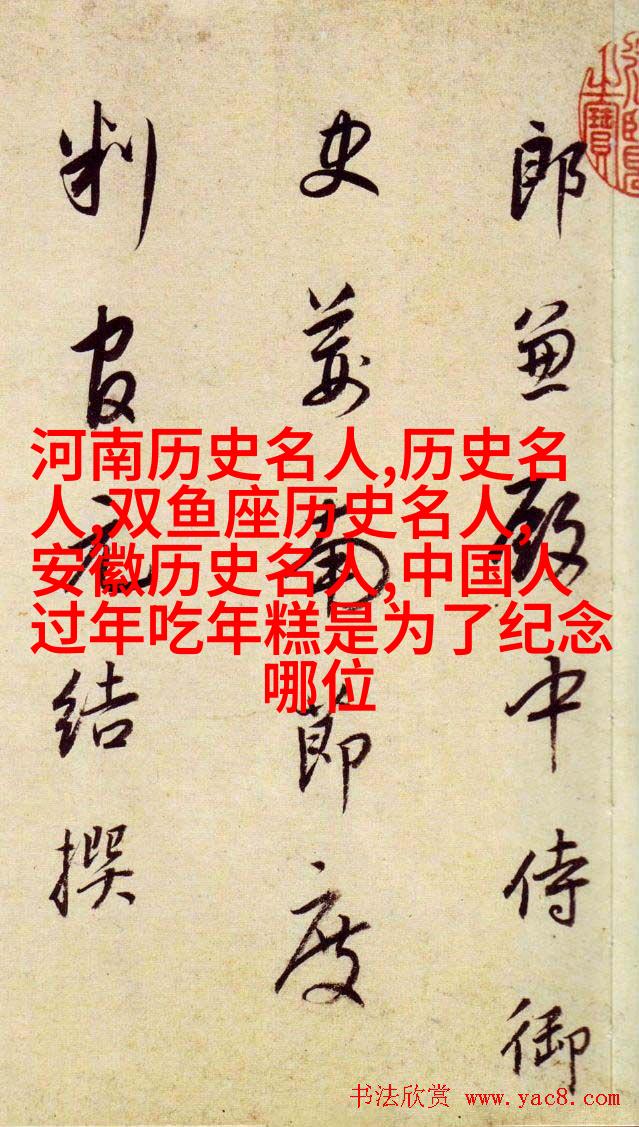 郎兼殿中侍御
史荊南節度
判官元結撰
河南历史名人,历史名
人,双鱼座历史名人,
安徽历史名人,中国人
过年吃年糕是为了纪念
哪位
书法欣赏 www.yac8.com